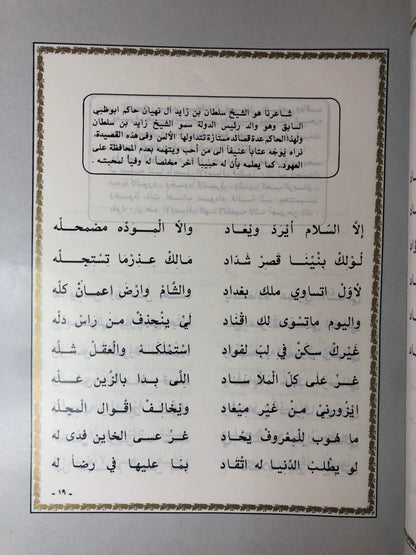 شاعرنا هو الشيخ سلطان بن زايد آل نهيان حاكم ابوظبي
السابق وهو والد رئيس الدولة سمو الشيخ زايد بن سلطان
ولهذا الحاكم عدة قصائد ممتازة تتداولها الألسن وفي هذه القصيدة.
نراه يوجّه عتاباً عنيفاً الى من أحب ويتهمه بعدم المحافظة على
العهود. كما يعلمه بأن له حبيباً آخر مخلصاً له وفياً لمحبته.
إلّا السّلام أيْرَدْ ويْعَاد والّا الْمودّه مضمحلّه
لَوّلِكْ بِنْيْنَا قصرْ شَدّاد مَالِكْ عذِرْمَا تستحِلّه
لأوّل اتساوي ملك بغداد والشّام وارْض اعمانْ كلّه
واليوم ماتسْوى لك اقْنَاد ليْ ينحْذِفْ من رَاس دلّه
غَيْرِكْ سكَنْ في لبْ لفواد اسْتملكَهْ والعقْل شلّه
غرٍّ عَلَى كلّ الملَا سَاد اللّى بدَا بالزّين علّه
ايْزورنيْ مِنْ غَيْر ميْعَاد ويْخَالفْ اقْوال الْمجِلّه
ما هُوب للْمعْروف يَحَّاد غرٍّ عسى الخاين فدى له
لو يِطْلِبْ الدّنْيا له اتْقَاد بمَا عليها في رضاْ له
- ١٩ -